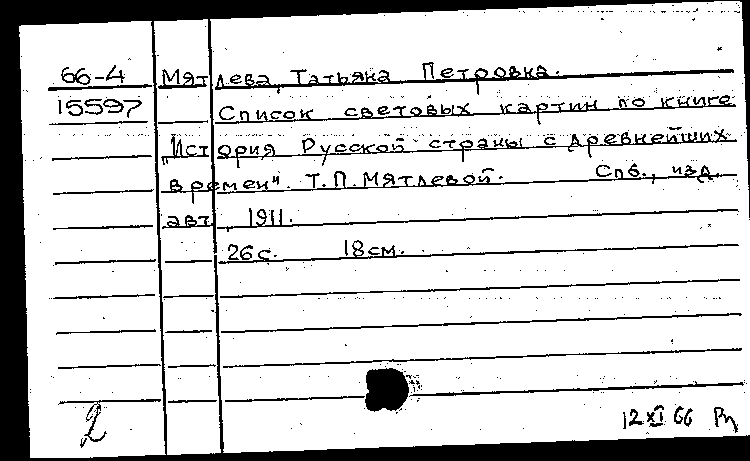 66-4 Мятлева, Татьяна Петровна.
15597 Список световых картин по книге
„История Русской страны с древнейших
времен". Т.П. Мятлевой. Спб., изд.
авт., 1911.
26 с. 18 см.
2 12 XI 66